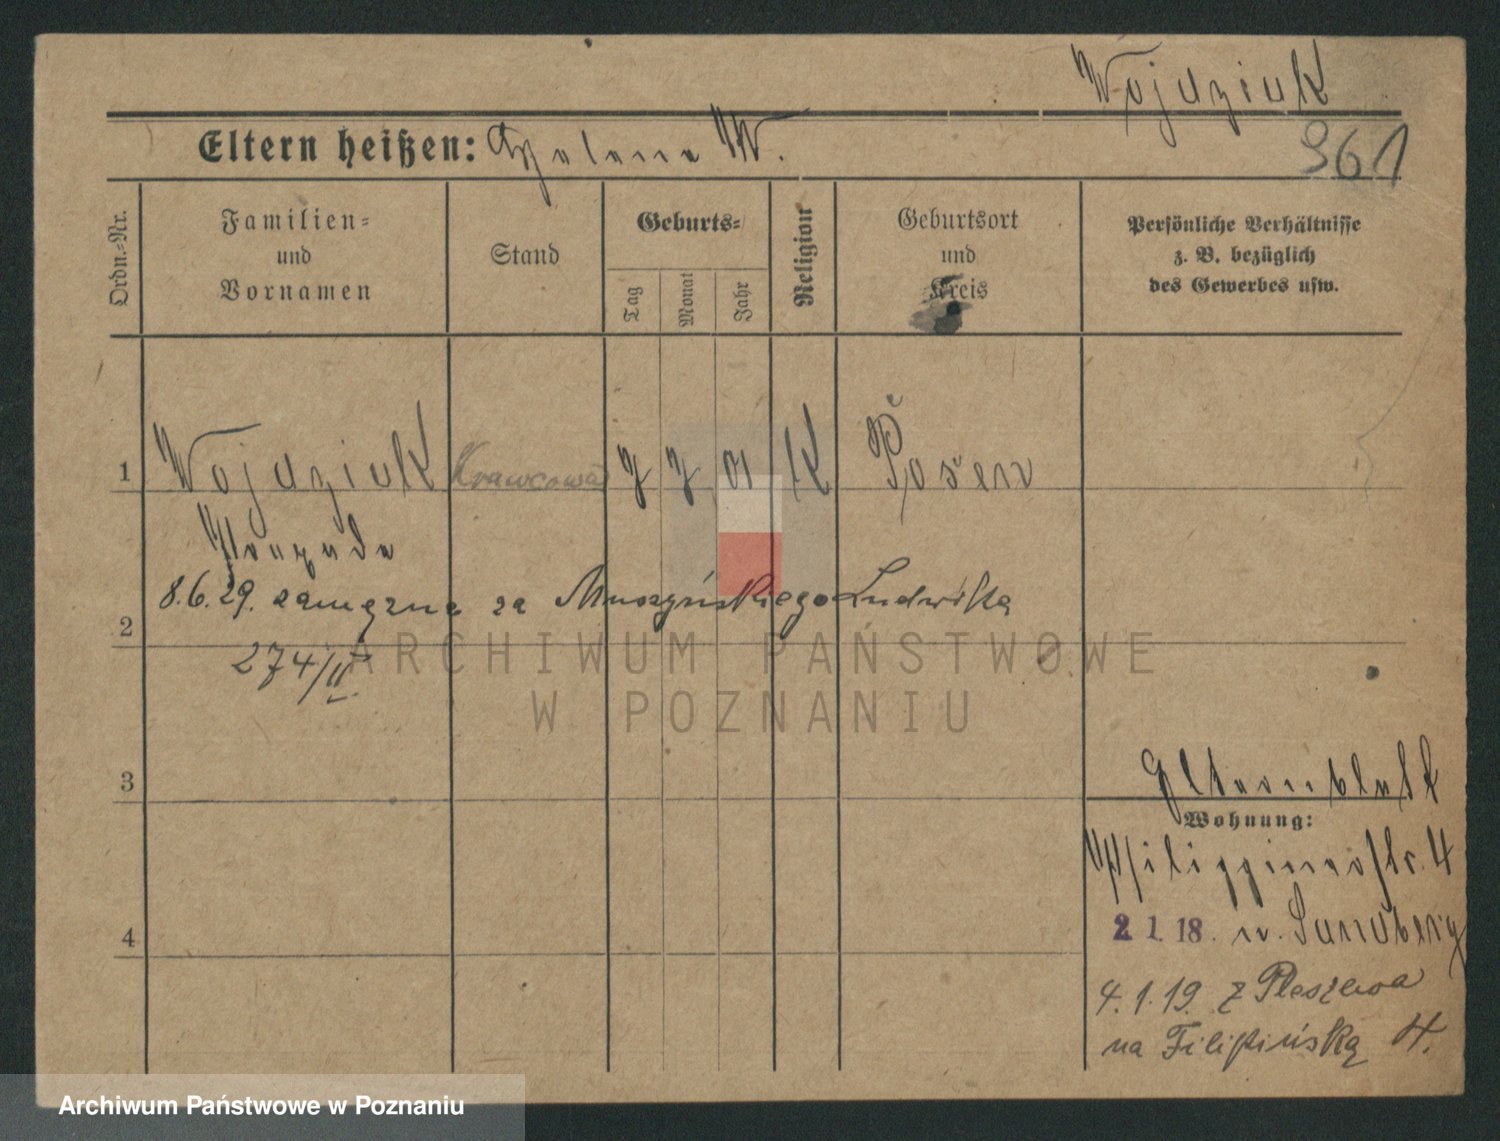 Wojdziuk
961
Eltern heißen: Helene W.
Ordn.-Nr.
Familien-
und
Vornamen
Stand
Geburts-
Tag
Monat
Jahr
Religion
Geburtsort
und
Kreis
Persönliche Verhältnisse
z. B. bezüglich
des Gewerbes usw.
1
Wojdziuk
Krawcowa
7 7 01
K
Posen
8.6.29. zamężna za Muszyńskiego Ludwika
2
274/II
ARCHIWUM PAŃSTWOWE
W POZNANIU
3
Elternblatt
Wohnung:
Philippinenstr. 4
2. 1. 18. n. Sandberg
4
4.1.19. z Pleszewa
na Filipińską 4.
Archiwum Państwowe w Poznaniu